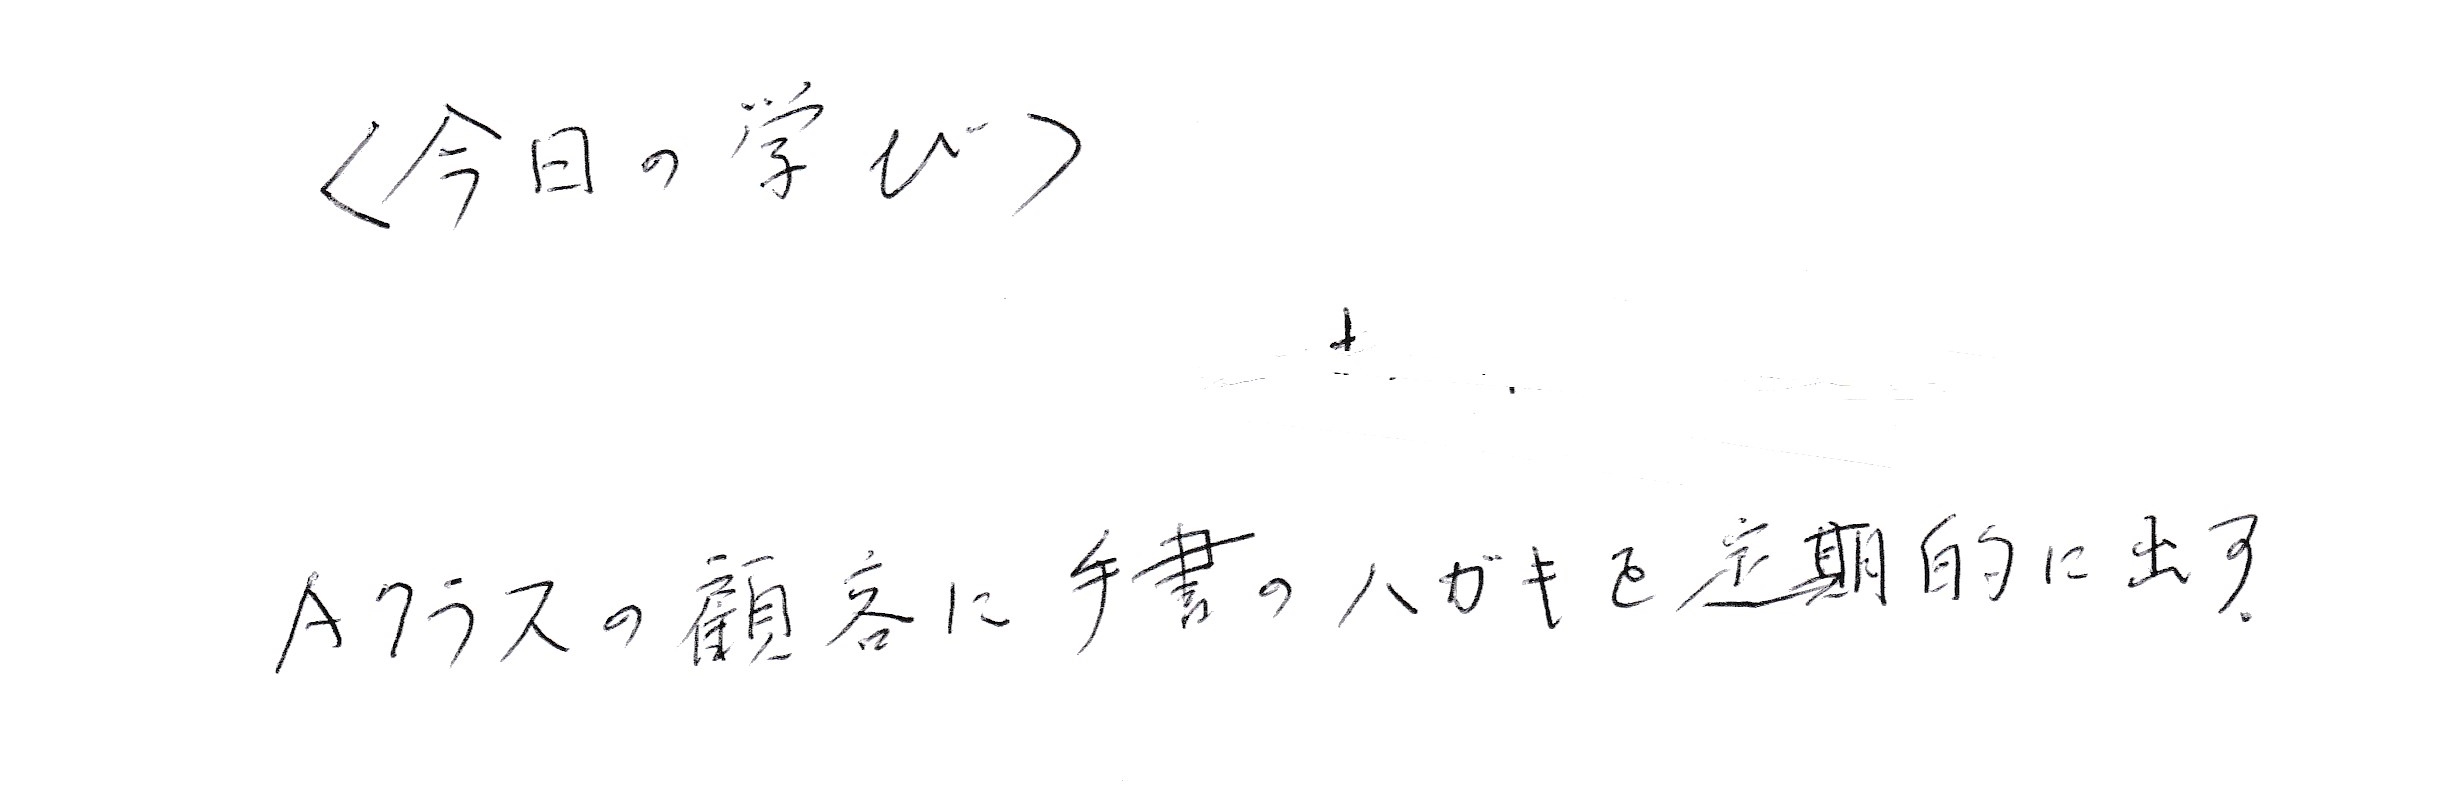 〈今日の学び〉
Aクラスの顧客に手書のハガキを定期的に出す.